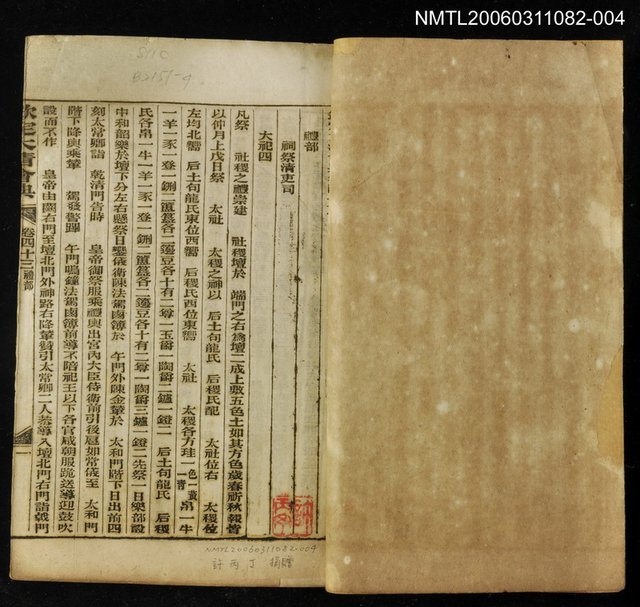 NMTL20060311082-004
B2151-4
禮部
祠祭清吏司
大祀四
凡祭 社稷之禮崇建 社稷壇於 端門之右為壇二成上敷五色土如其方色歲春祈秋報皆
以仲月上戊日祭 太社 太稷之神以 后土句龍氏 后稷氏配 太社位右 太稷位
左均北嚮 后土句龍氏東位西嚮 后稷氏西位東嚮 太社 太稷各方珪一色一黃一青帛一牛
一羊一豕一登一鉶二簠簋各二籩豆各十有二尊一玉爵一陶爵二鑪一鐙二 后土句龍氏 后稷
氏各帛一牛一羊一豕一登一鉶二簠簋各二籩豆各十有二尊一陶爵三鑪一鐙二先祭一日樂部設
中和韶樂於壇下分左右懸祭日鑾儀衛陳法駕鹵簿於 午門外陳金輦於 太和門階下日出前四
刻太常卿詣 乾清門告時 皇帝御祭服乘禮輿出宮內大臣侍衛前引後扈如常儀至 太和門
階下降輿乘輦 駕發警蹕 午門鳴鐘法駕鹵簿前導不陪祀王以下各官咸朝服跪送導迎鼓吹
設而不作 皇帝由闕右門至壇北門外神路右降輦贊引太常卿二人恭導入壇北門右門詣戟門
欽定大清會典
卷四十三 禮部
一
NMTL20060311082-004
許丙丁 捐贈